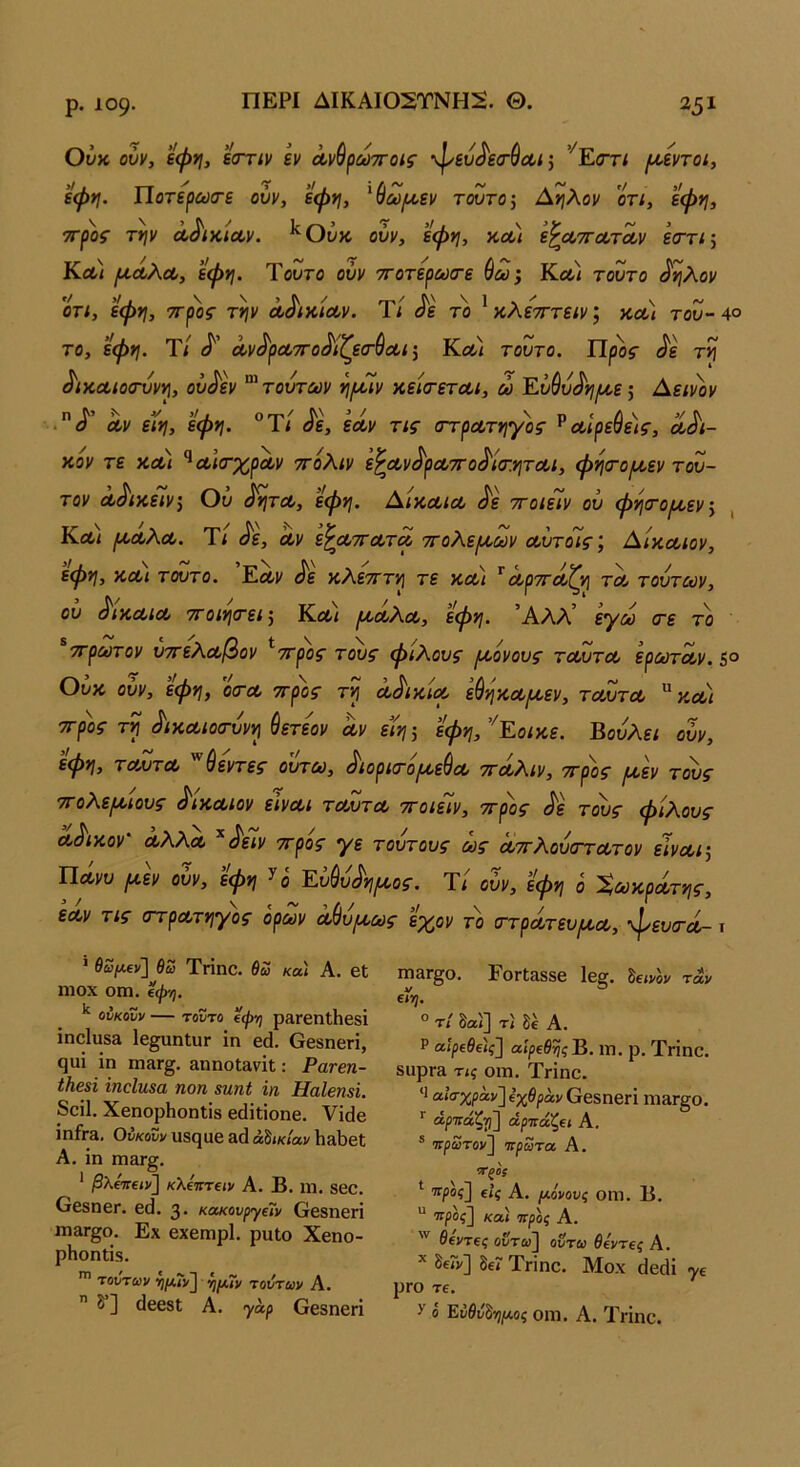 p. 109. ΠΕΡΙ ΔΙΚΑΙΟΣΥΝΗΣ. Θ. 251
Οὐκ οὖν, ἔφη, ἔστιν ἐν ἀνθρώποις ψεύδεσθαι; Ἔστι μέντοι,
ἔφη. Ποτέρωσε οὖν, ἔφη, ⁱθῶμεν τοῦτο; Δῆλον ὅτι, ἔφη,
πρὸς τὴν ἀδικίαν. ᵏΟὐκ οὖν, ἔφη, καὶ ἐξαπατᾶν ἐστι;
Καὶ μάλα, ἔφη. Τοῦτο οὖν ποτέρωσε θῶ; Καὶ τοῦτο δῆλον
ὅτι, ἔφη, πρὸς τὴν ἀδικίαν. Τί δὲ τὸ ˡκλέπτειν; καὶ τοῦ- 40
το, ἔφη. Τί δ’ ἀνδραποδίζεσθαι; Καὶ τοῦτο. Πρὸς δὲ τῇ
δικαιοσύνῃ, οὐδὲν ᵐτούτων ἡμῖν κείσεται, ὦ Εὐθύδημε; Δεινὸν
ⁿδ’ ἂν εἴη, ἔφη. ᵒΤί δὲ, ἐάν τις στρατηγὸς ᵖαἱρεθεὶς, ἄδι-
κόν τε καὶ ᑫαἰσχρὰν πόλιν ἐξανδραποδίσηται, φήσομεν τοῦ-
τον ἀδικεῖν; Οὐ δῆτα, ἔφη. Δίκαια δὲ ποιεῖν οὐ φήσομεν;
Καὶ μάλα. Τί δὲ, ἂν ἐξαπατᾷ πολεμῶν αὐτοῖς; Δίκαιον,
ἔφη, καὶ τοῦτο. Ἐὰν δὲ κλέπτῃ τε καὶ ʳἁρπάζῃ τὰ τούτων,
οὐ δίκαια ποιήσει; Καὶ μάλα, ἔφη. Ἀλλ’ ἐγώ σε τὸ
ˢπρῶτον ὑπέλαβον ᵗπρὸς τοὺς φίλους μόνους ταῦτα ἐρωτᾶν. 50
Οὐκ οὖν, ἔφη, ὅσα πρὸς τῇ ἀδικίᾳ ἐθήκαμεν, ταῦτα ᵘκαὶ
πρὸς τῇ δικαιοσύνῃ θετέον ἂν εἴη; ἔφη, Ἔοικε. Βούλει οὖν,
ἔφη, ταῦτα ʷθέντες οὕτω, διορισόμεθα πάλιν, πρὸς μὲν τοὺς
πολεμίους δίκαιον εἶναι ταῦτα ποιεῖν, πρὸς δὲ τοὺς φίλους
ἄδικον· ἀλλὰ ˣδεῖν πρός γε τούτους ὡς ἁπλούστατον εἶναι;
Πάνυ μὲν οὖν, ἔφη ʸὁ Εὐθύδημος. Τί οὖν, ἔφη ὁ Σωκράτης,
ἐάν τις στρατηγὸς ὁρῶν ἀθύμως ἔχον τὸ στράτευμα, ψευσά- 1
ⁱ θῶμεν] θῶ Trinc. θῶ καὶ A. et
mox om. ἔφη.
ᵏ οὐκοῦν — τοῦτο ἔφη parenthesi
inclusa leguntur in ed. Gesneri,
qui in marg. annotavit: Paren-
thesi inclusa non sunt in Halensi.
Scil. Xenophontis editione. Vide
infra. Οὐκοῦν usque ad ἀδικίαν habet
A. in marg.
ˡ βλέπειν] κλέπτειν A. B. m. sec.
Gesner. ed. 3. κακουργεῖν Gesneri
margo. Ex exempl. puto Xeno-
phontis.
ᵐ τούτων ἡμῖν] ἡμῖν τούτων A.
ⁿ δ’] deest A. γὰρ Gesneri
margo. Fortasse leg. δεινὸν τἂν
εἴη.
ᵒ τί δαὶ] τὶ δὲ A.
ᵖ αἱρεθεὶς] αἱρεθῇς B. m. p. Trinc.
supra τις om. Trinc.
ᑫ αἰσχρὰν] ἐχθρὰν Gesneri margo.
ʳ ἁρπάζῃ] ἁρπάζει A.
ˢ πρῶτον] πρῶτα A.
πρὸς
ᵗ πρὸς] εἰς A. μόνους om. B.
ᵘ πρὸς] καὶ πρὸς A.
ʷ θέντες οὕτω] οὕτω θέντες A.
ˣ δεῖν] δεῖ Trinc. Mox dedi γε
pro τε.
ʸ ὁ Εὐθύδημος om. A. Trinc.